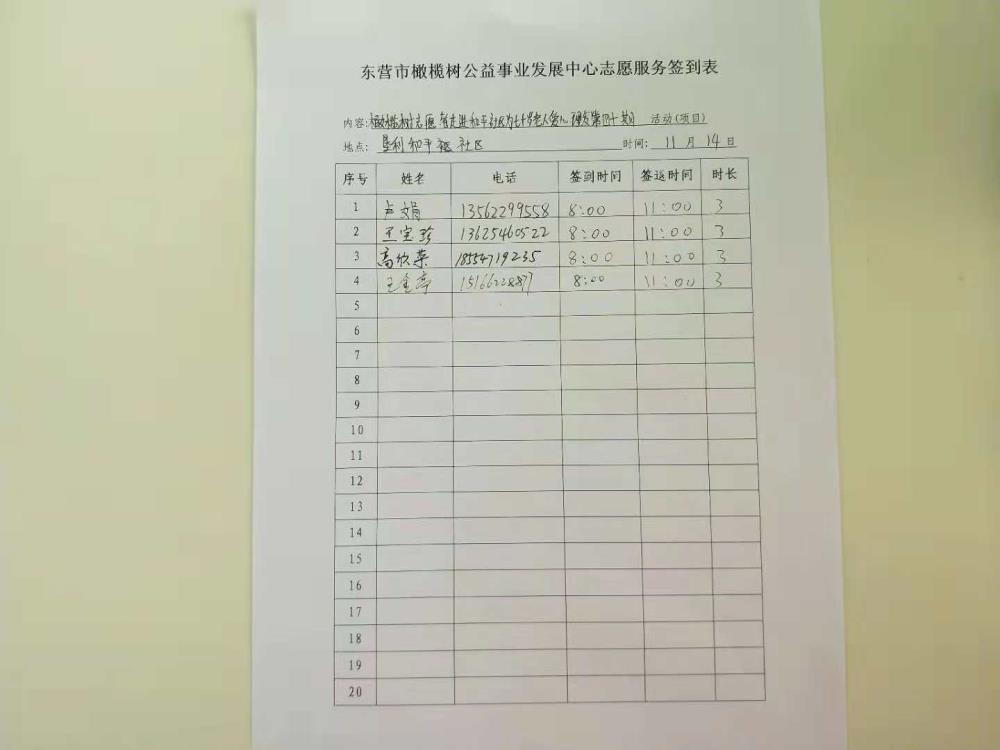 东营市橄榄树公益事业发展中心志愿服务签到表
内容:橄榄树志愿者走进和平社区为七十岁老人爱心理发第四十期 活动(项目)
地点: 垦利和平社区 时间: 11 月 14 日
序号 姓名 电话 签到时间 签返时间 时长
1 卢文娟 13562299558 8:00 11:00 3
2 王宝珍 13625460522 8:00 11:00 3
3 高欣荣 18554719235 8:00 11:00 3
4 王金亭 8:00 11:00 3
5
6
7
8
9
10
11
12
13
14
15
16
17
18
19
20